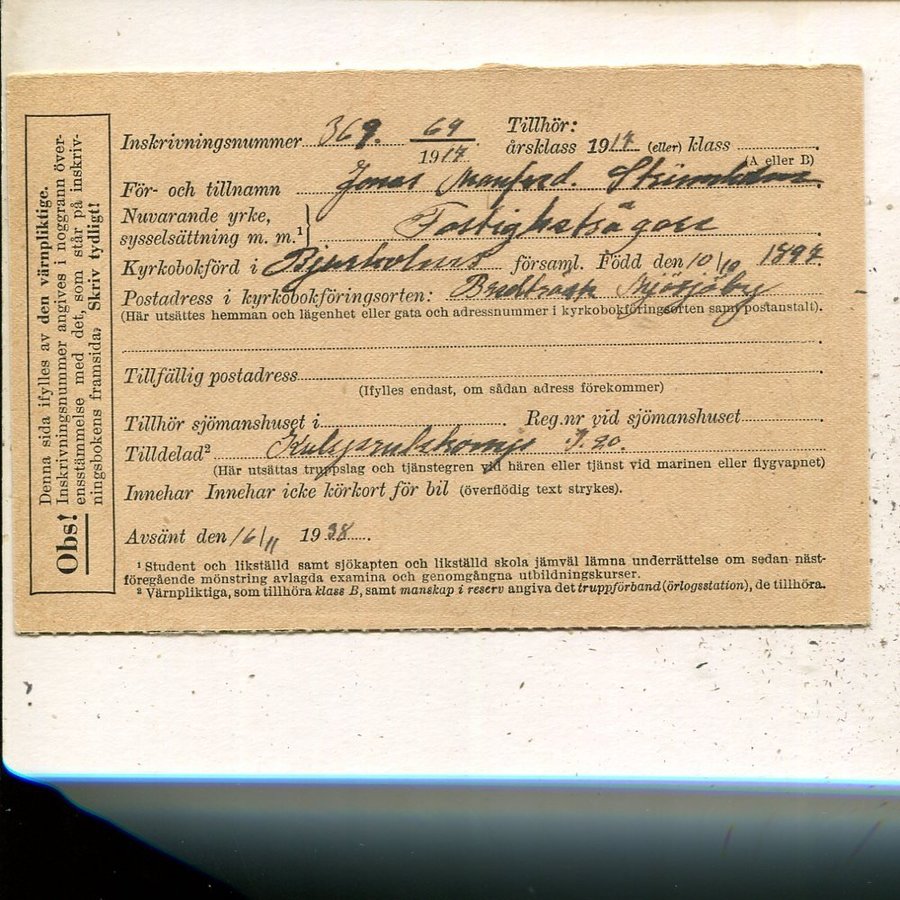 Obs! Denna sida ifylles av den värnpliktige.
Inskrivningsnummer angives i noggrann över-
ensstämmelse med det, som står på inskriv-
ningsbokens framsida. Skriv tydligt!
Inskrivningsnummer 369. 69/1917 Tillhör: årsklass 1917 (eller) klass
(A eller B)
För- och tillnamn Jonas Manfred.
Nuvarande yrke,
sysselsättning m. m.¹ } Fastighetsägare
Kyrkobokförd i Bjurholms församl. Född den 10/10 1897.
Postadress i kyrkobokföringsorten: Bredträsk
(Här utsättes hemman och lägenhet eller gata och adressnummer i kyrkobokföringsorten samt postanstalt).
Tillfällig postadress
(Ifylles endast, om sådan adress förekommer)
Tillhör sjömanshuset i Reg.nr vid sjömanshuset
Tilldelad² I. 20.
(Här utsättas truppslag och tjänstegren vid hären eller tjänst vid marinen eller flygvapnet)
Innehar Innehar icke körkort för bil (överflödig text strykes).
Avsänt den 16/11 1938.
¹ Student och likställd samt sjökapten och likställd skola jämväl lämna underrättelse om sedan näst-
föregående mönstring avlagda examina och genomgångna utbildningskurser.
² Värnpliktiga, som tillhöra klass B, samt manskap i reserv angiva det truppförband (örlogsstation), de tillhöra.